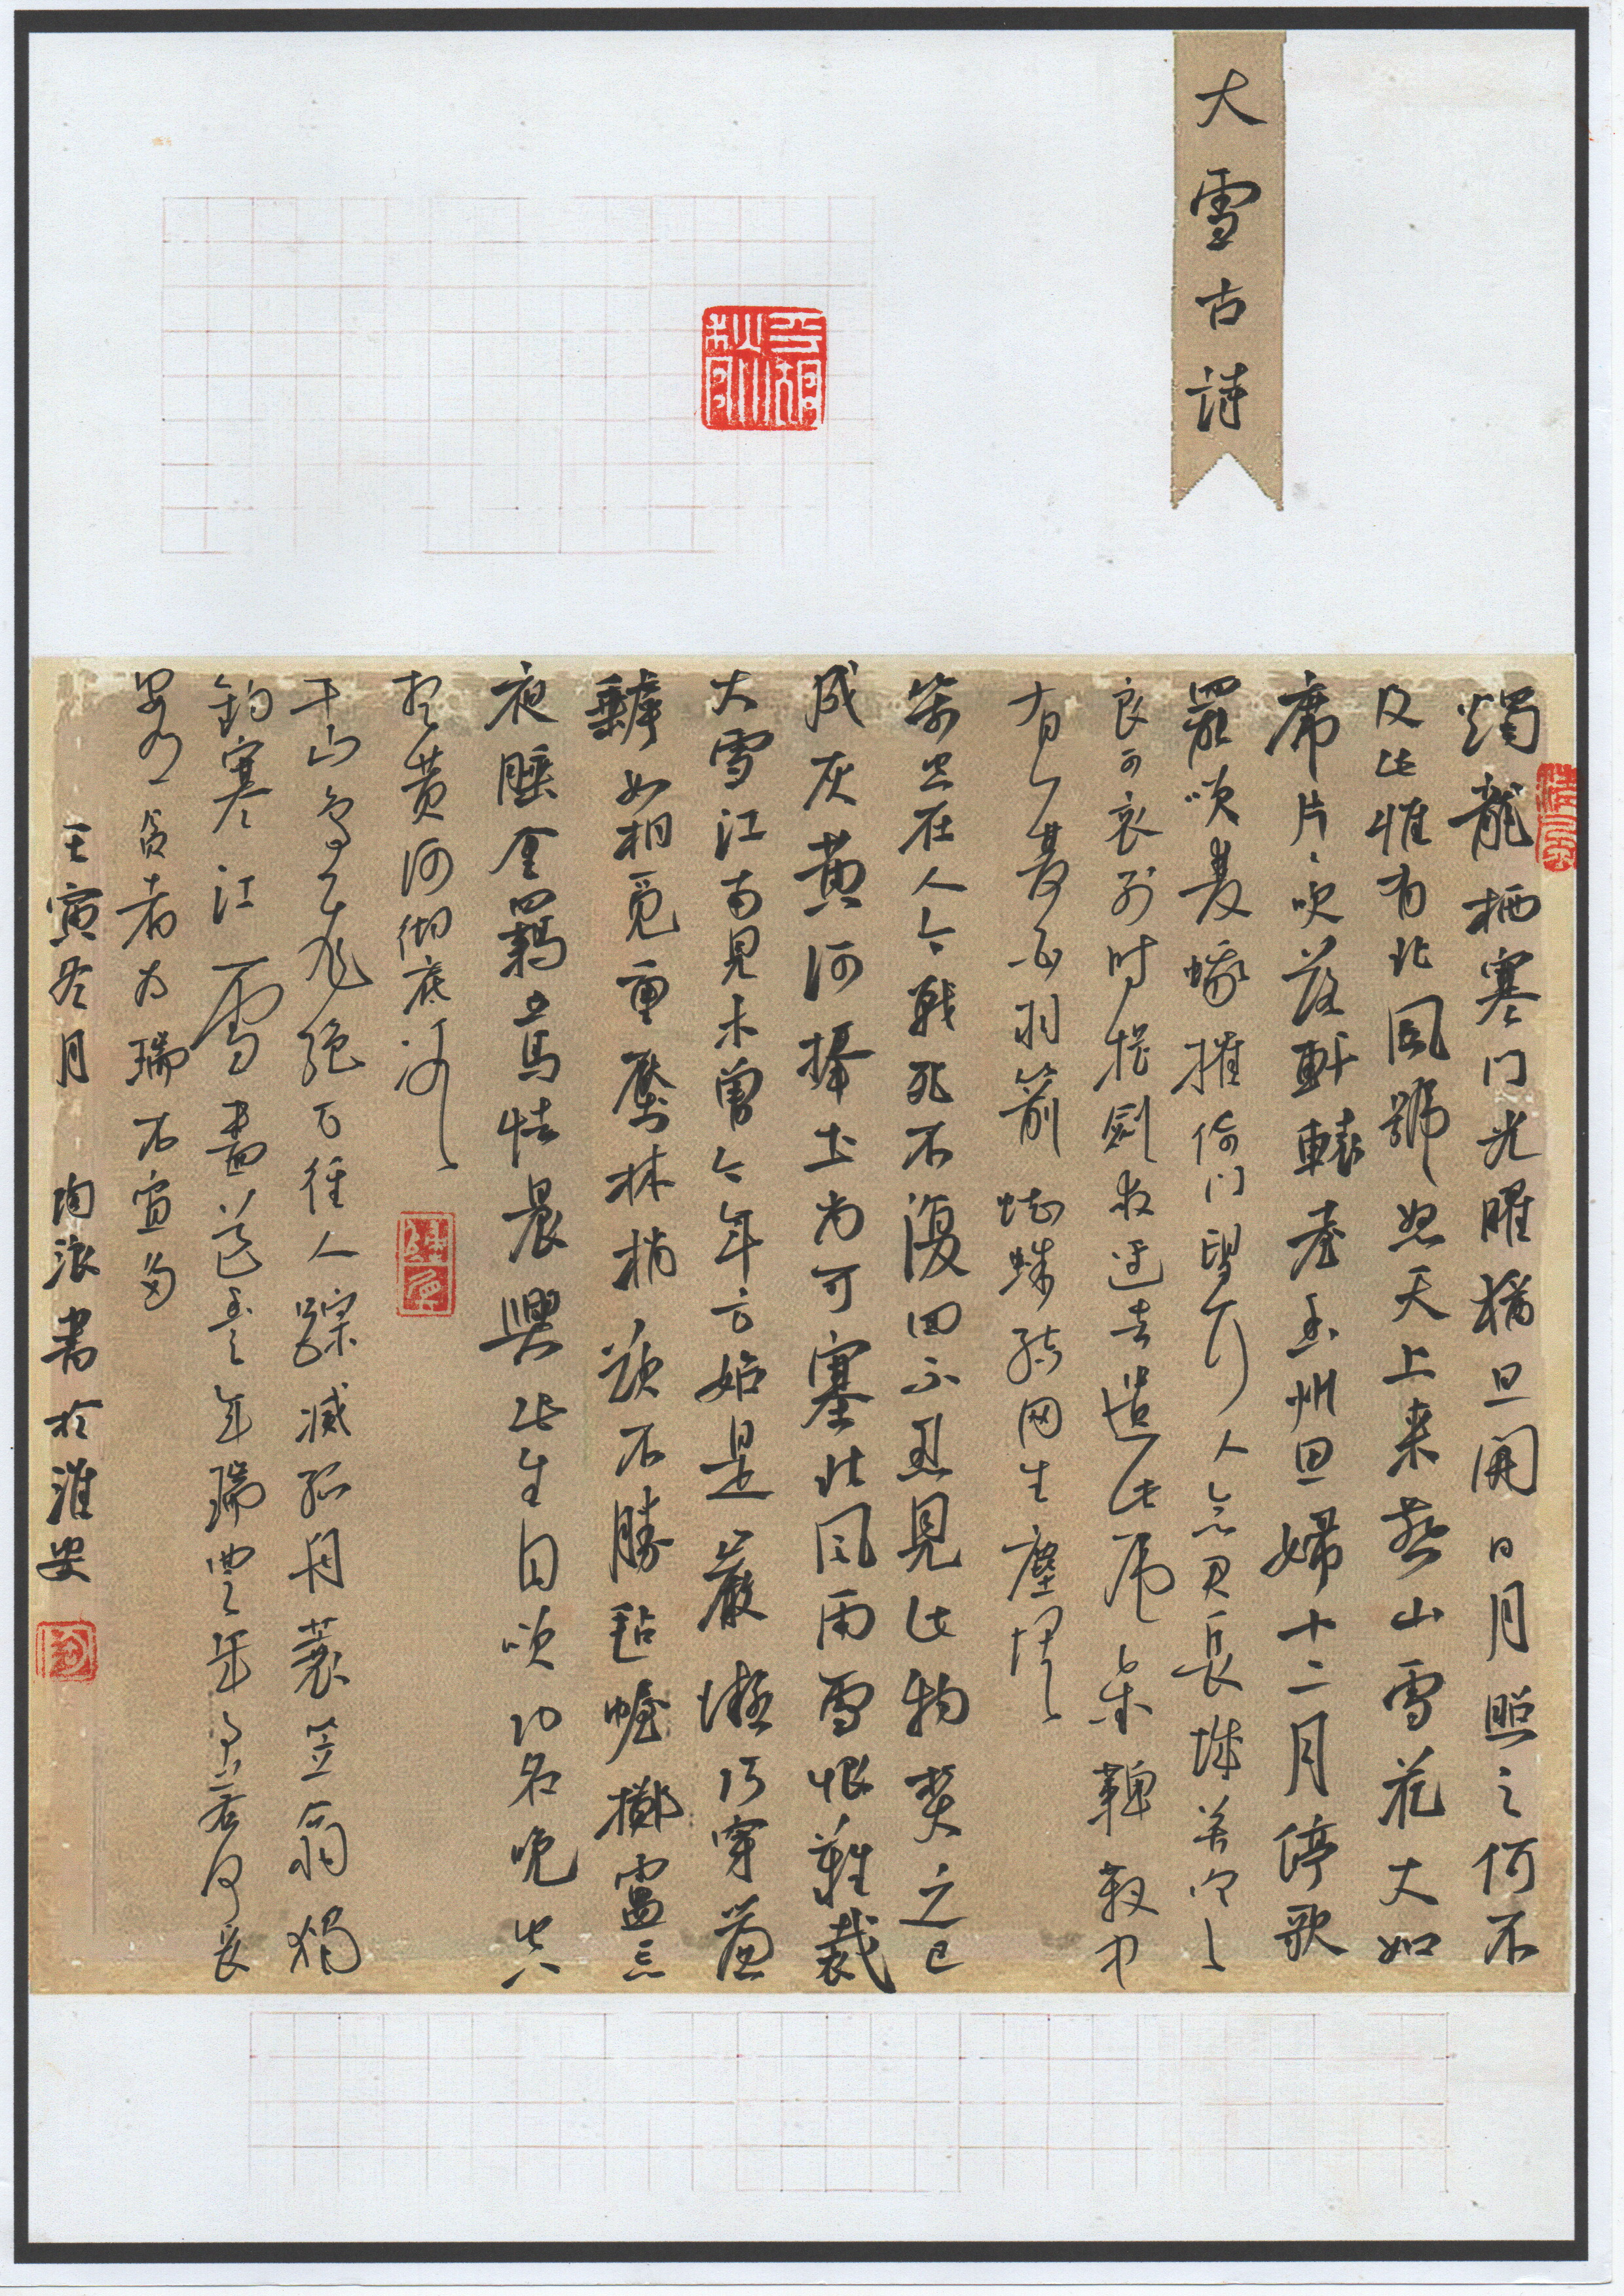 大雪古詩
平湖秋月
燭龍栖寒门光曜猶旦開日月照之何不
及此惟有北風號怒天上来燕山雪花大如
席片、吹落軒轅臺幽州思婦十二月停歌
罷笑雙蛾摧倚门望行人念君長城苦寒
良可哀别时提劍救邊去遺此虎文金鞞靫中
有一雙白羽箭蜘蛛結网生塵埃
箭空在人今戰死不復回不忍見此物焚之已
成灰黄河捧土尚可塞北風雨雪恨難裁
大雪江南見未曾今年方始是嚴凝巧穿簾
罅如相覓重壓林梢欲不勝毡幄擲盧忘
夜睡金羁立馬怯晨興此生自笑功名晚空
想黄河彻底冰
千山鸟飞绝万徑人踪滅孤舟蓑笠翁独
釣寒江雪盡道豐年瑞豐年事若何长
安有贫者为瑞不宜多
壬寅冬月 陶浪書於淮安